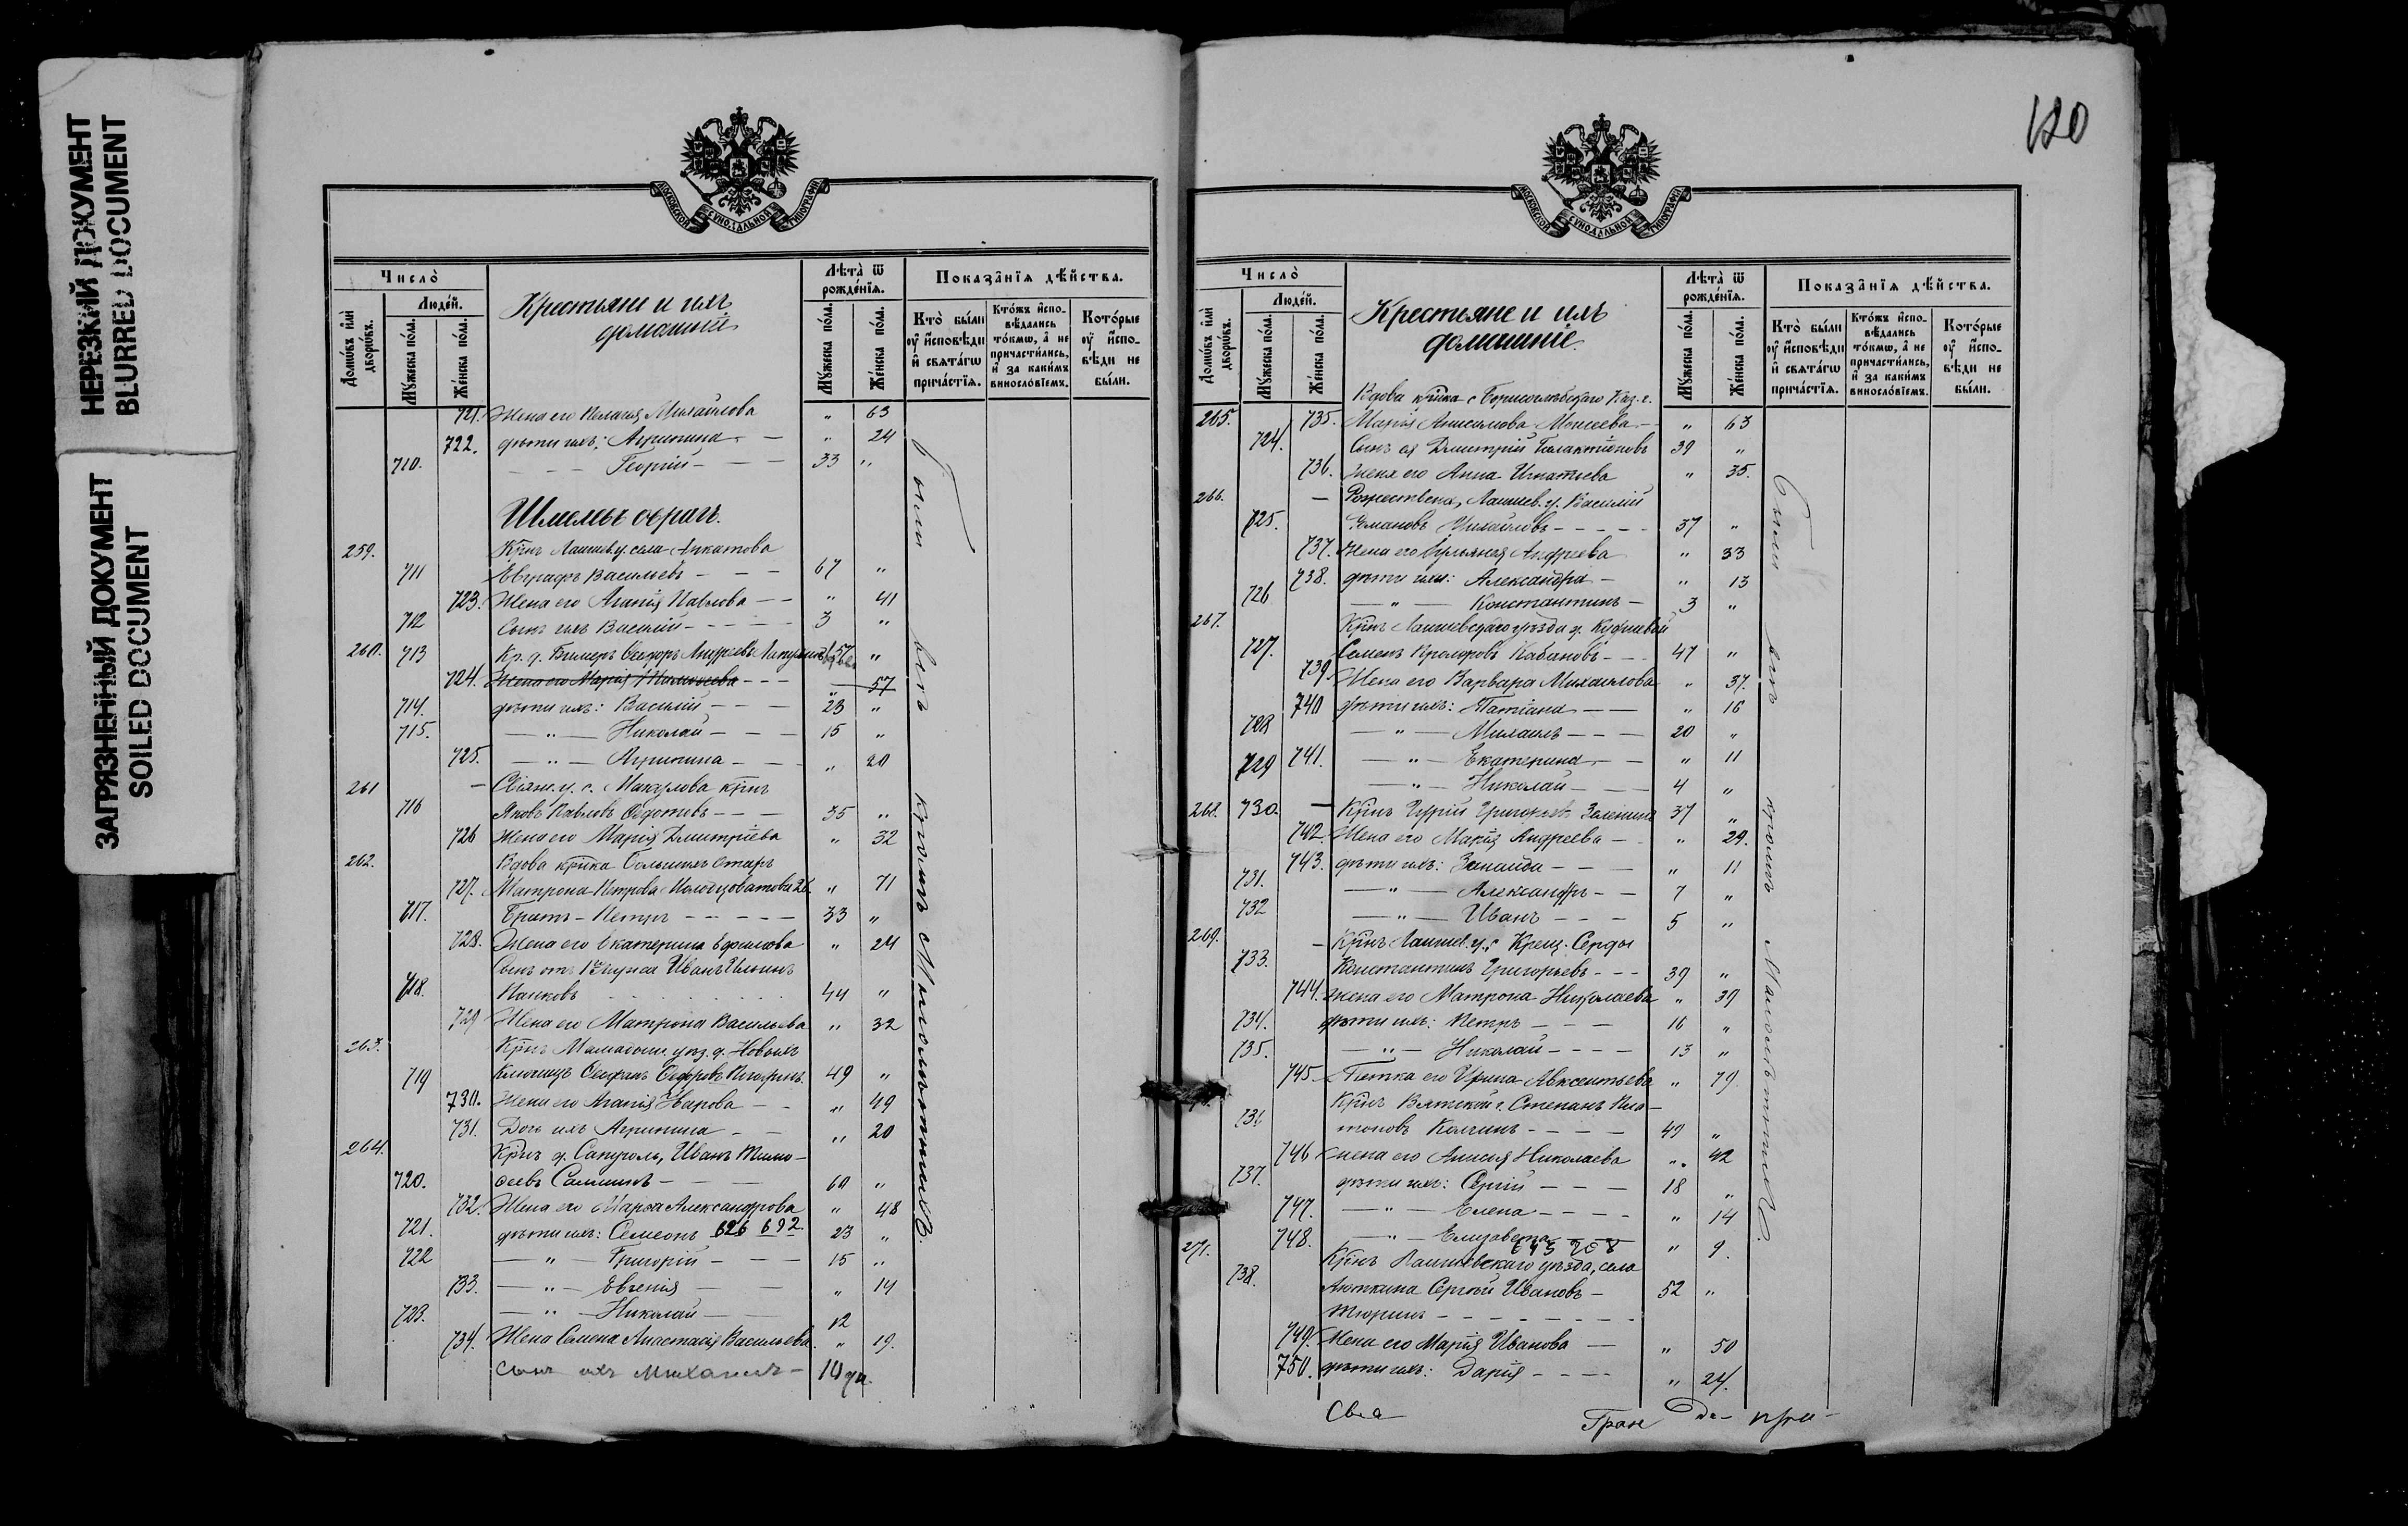 НЕРЕЗКИЙ ДОКУМЕНТ
BLURRED DOCUMENT
ЗАГРЯЗНЕННЫЙ ДОКУМЕНТ
SOILED DOCUMENT
МОСКОВСКОЙ СѴНОДАЛЬНОЙ ТИПОГРАФІИ
Число̀
Людéй.
Домѡ́въ и҆лѝ дворѡ́въ.
Мꙋ́жеска по́ла.
Же́нска по́ла.
Крестьяне и ихъ домашніе
Лѣта̀ ѿ рожде́нїѧ.
Мꙋ́жеска по́ла.
Же́нска по́ла.
Показа̑нїѧ дѣ́йства.
Кто̀ бы́ли оу҆ и҆сповѣди и҆ свѧта́гѡ прича́стїѧ.
Кто́жъ и҆спо-вѣдались то́кмѡ, а҆ не причасти́лись, и҆ за каки́мъ винослóвїемъ.
Кото́рые оу҆ и҆спо-вѣди не бы́ли.
721. Жена его Пелагія Михайлова " 63
722. дѣти ихъ: Агрипина — " 24
710. — — — Георгій — — — 33 "
Шмелевъ оврагъ.
259. Крнъ Лаишев. у. села
711 Евграфъ Васильевъ — — — 67 "
723. Жена его Агапія Павлова — — " 41
712 Сынъ ихъ Василій — — — 3 "
260. 713 Кр. д. Ѳеодоръ Андреевъ 57 "
724. Жена его Марія — — — " 57
714. дѣти ихъ: Василій — — — 23 "
715. — " — Николай — — — 15 "
725. — " — Агрипина — — " 20
261 — Свіяж. у. с. Макулова крнъ
716 Яковъ Павловъ Ѳедотовъ — — — 35 "
726 Жена его Марія Дмитріева " 32
262. Вдова крнка
727. Матрона Петрова " 71
717. Братъ — Петръ — — — — 33 "
728. Жена его Екатерина Ефимова " 24
Сынъ отъ 1го мужа Иванъ Ильинъ
718. Панковъ 44 "
729 Жена его Матрона Васильева " 32
263. Крнъ Мамадыш. уѣз. д. Новыхъ
719 Ѳеодоровъ 49 "
730. Жена его Агапія — — " 49
731. Дочь ихъ Агрипина — — " 20
264. Крнъ д. Сапуголь, Иванъ Тимо-
720. ѳеевъ — — — 60 "
732. Жена его Марѳа Александрова " 48
721. дѣти ихъ: Семеонъ 626 692. 23 "
722 — " — Григорій — — — 15 "
733. — " — Евгенія — — " 14
723. — " — Николай — — 12
734. Жена Семена Анастасія Васильева. " 19.
Сынъ ихъ Михаилъ — 10 дн.
Были всѣ кромѣ Малолѣтнихъ.
120
МОСКОВСКОЙ СѴНОДАЛЬНОЙ ТИПОГРАФІИ
Число̀
Людéй.
Домѡ́въ и҆лѝ дворѡ́въ.
Мꙋ́жеска по́ла.
Же́нска по́ла.
Крестьяне и ихъ домашніе
Лѣта̀ ѿ рожде́нїѧ.
Мꙋ́жеска по́ла.
Же́нска по́ла.
Показа̑нїѧ дѣ́йства.
Кто̀ бы́ли оу҆ и҆сповѣди и҆ свѧта́гѡ прича́стїѧ.
Кто́жъ и҆спо-вѣдались то́кмѡ, а҆ не причасти́лись, и҆ за каки́мъ винослóвїемъ.
Кото́рые оу҆ и҆спо-вѣди не бы́ли.
Вдова крнка с Борисоглѣбскаго Каз. г.
265. 735. Марія Анисимова Моисеева — " 63
724. Сынъ ея Дмитрій Галактіоновъ 39 "
736. Жена его Анна Игнатьева " 35.
266. — Рождествена, Лаишев. у. Василій
725. Михайловъ — — — — 37 "
737. Жена его Ульяния Андреева " 33
738. дѣти ихъ: Александра — " 13
726 — " — Константинъ — 3 "
267. Крнъ Лаишевскаго уѣзда д.
727. Семенъ Кабановъ — — 47 "
739. Жена его Варвара Михаилова " 37.
740 дѣти ихъ: Татіана — — " 16
728 — " — Михаилъ — — — 20 "
741. — " — Екатерина — — " 11
729 — " — Николай — — — 4 "
268. 730. — Крнъ Гурій Григорьевъ Зеленинъ 37 "
742. Жена его Марія Андреева — " 29.
743. дѣти ихъ: Зинаида — — — " 11
731. — " — Александръ — — 7 "
732 — " — Иванъ — — — 5 "
269. — Крнъ Лаишев. у., с Крещ. Серды
733. Константинъ Григорьевъ — — — 39 "
744. Жена его Матрона Николаева " 39
734. дѣти ихъ: Петръ — — — 16 "
735. — " — Николай — — — — 13 "
745. Тетка его Ирина Авксентьева " 79.
Крнъ Вятской г. Степанъ Пла-
736 тоновъ — — — — 49 "
746 Жена его Анисія Николаева " 42
737. дѣти ихъ: Сергій — — — 18 "
747. — " — Елена — — — — " 14
748. — " — Елизавета " 9.
643 708
271. Крнъ Лаишевскаго уѣзда, села
738. Сергѣй Ивановъ — 52 "
Тюринъ — — — — — — — —
749. Жена его Марія Иванова — " 50
750. дѣти ихъ: Дарія — — — — " 24.
Были всѣ кромѣ Малолѣтнихъ.